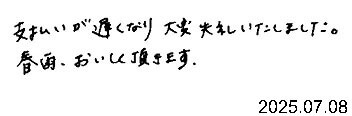 支払いが遅くなり 大変失礼いたしました。
春雨、おいしく頂きます.
2025.07.08